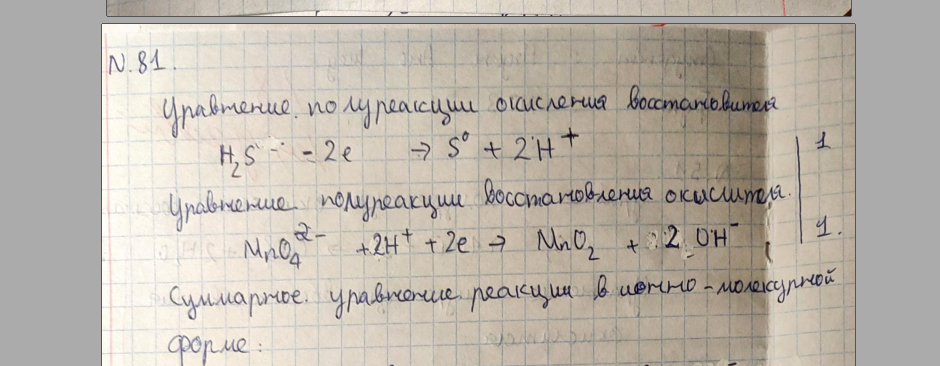 N.81.
Уравнение полуреакции окисления восстановителя
H₂S - 2e → S⁰ + 2H⁺ 1
Уравнение полуреакции восстановления окислителя.
MnO₄²⁻ + 2H⁺ + 2e → MnO₂ + 2 OH⁻ 1.
Суммарное уравнение реакции в ионно-молекулярной
форме: